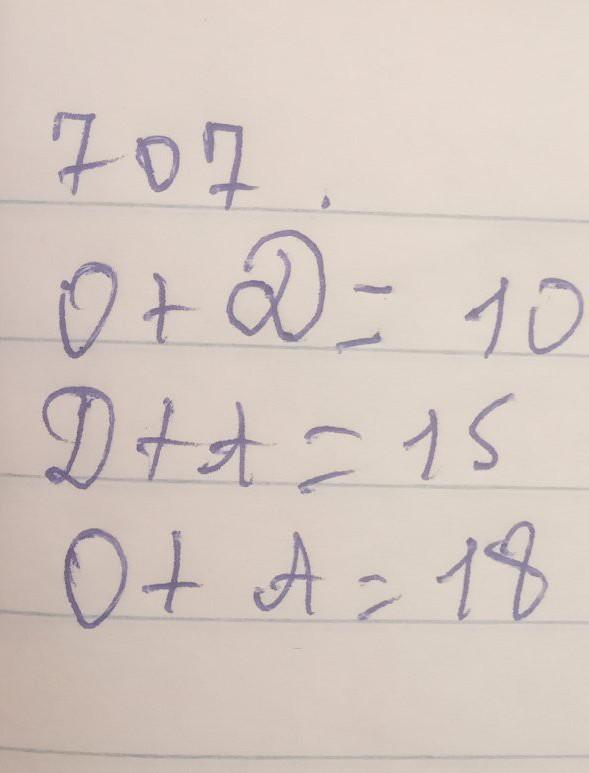 707.
О + Д = 10
Д + А = 15
О + А = 18